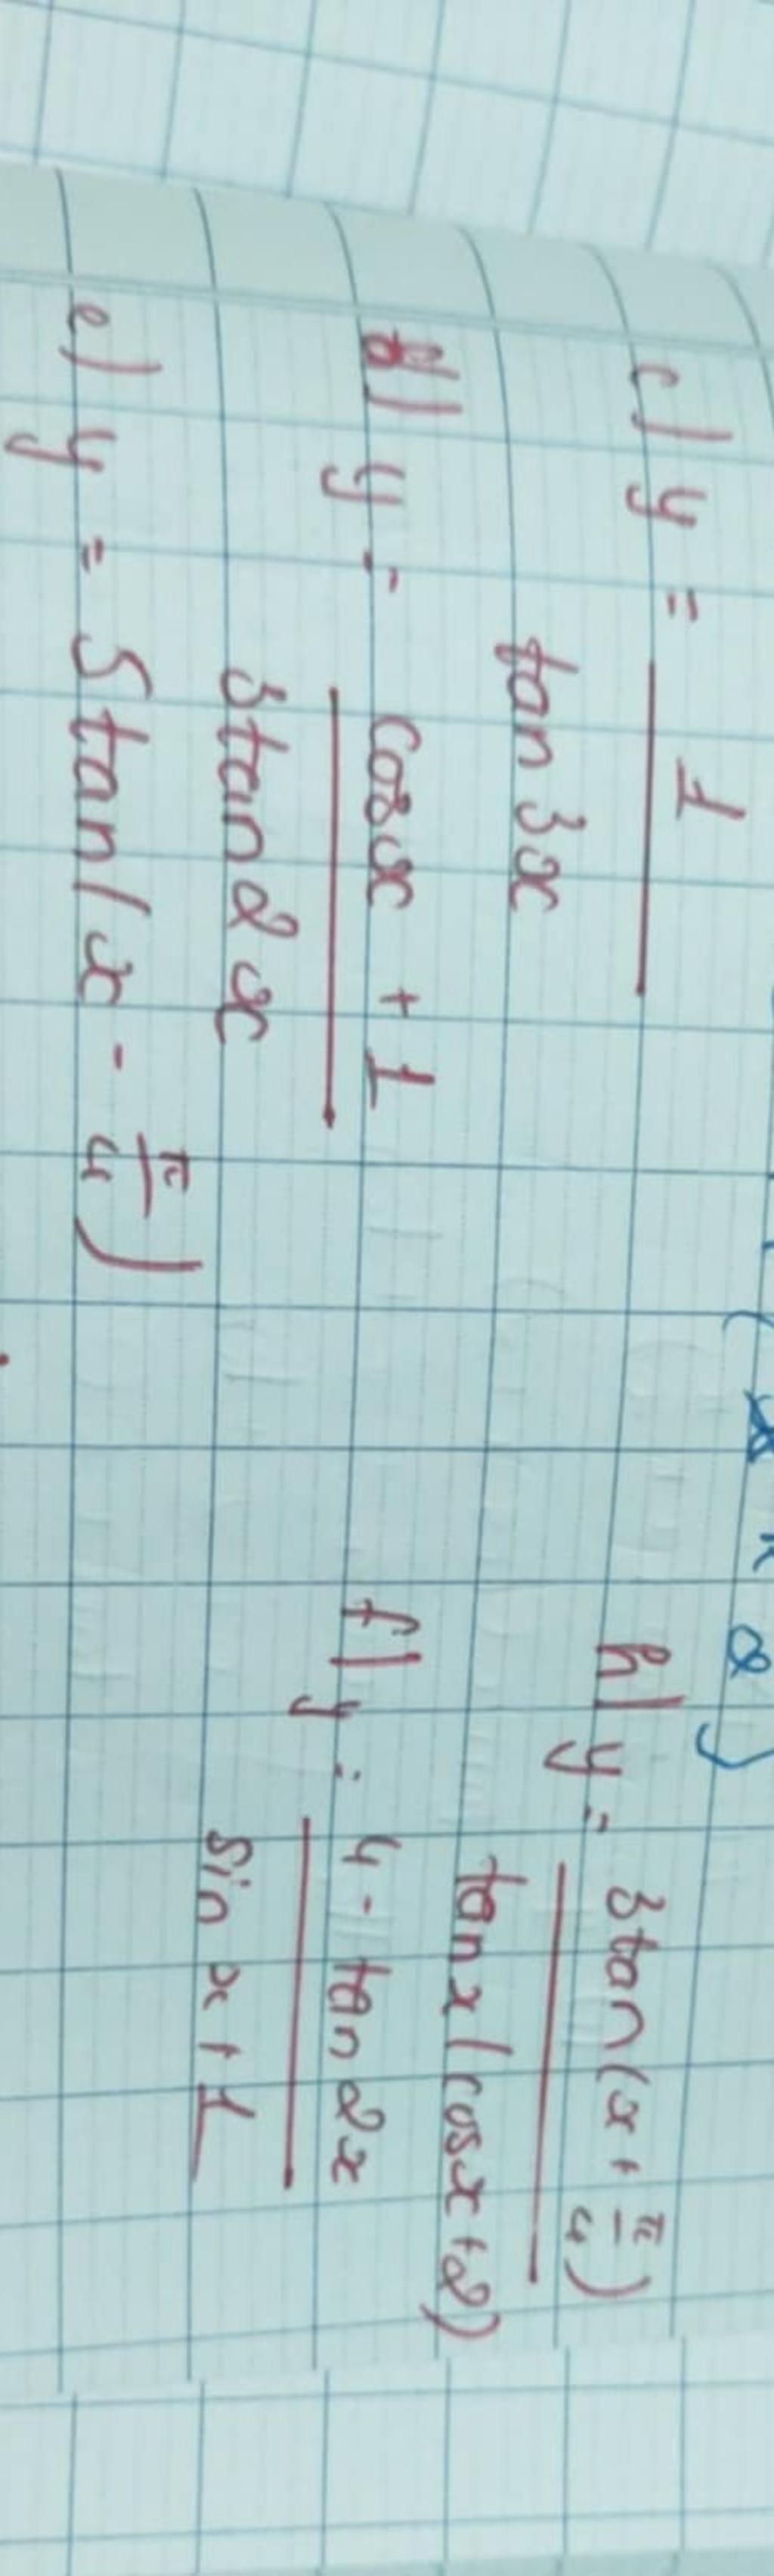 c) y = 1
tan 3x
d) y = cosx + 1
3tan2x
e) y = 5tan(x - π/4)
h) y = 3tan(x + π/4)
tanx(cosx+2)
f) y = 4 - tan2x
sinx + 1